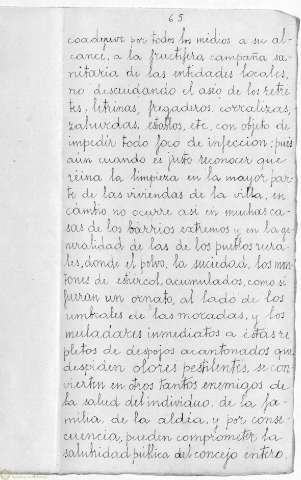 65
coadyuve por todos los medios a su al-
cance, a la fructifera campaña sa-
nitaria de las entidades locales,
no descuidando el aseo de los retre
tes, letrinas, fregaderos, corralizas,
zahurdas, establos, etc, con objeto de
impedir todo foco de infección; pues
aun cuando es justo reconocer que
reina la limpieza en la mayor par-
te de las viviendas de la villa, en
cambio no ocurre asi en muchas ca-
sas de los barrios extremos y en la ge-
neralidad de las de los pueblos rura-
les, donde el polvo, la suciedad, los mon-
tones de estiercol, acumulados, como si
fueran un ornato, al lado de los
umbrales de las moradas, y los
muladares inmediatos a éstas re-
pletos de despojos acantonados que
despiden olores pestilentes, se con-
vierten en otros tantos enemigos de
la salud del individuo, de la fa-
milia, de la aldea, y por conse-
cuencia, pueden comprometer la
salubridad pública del concejo entero.